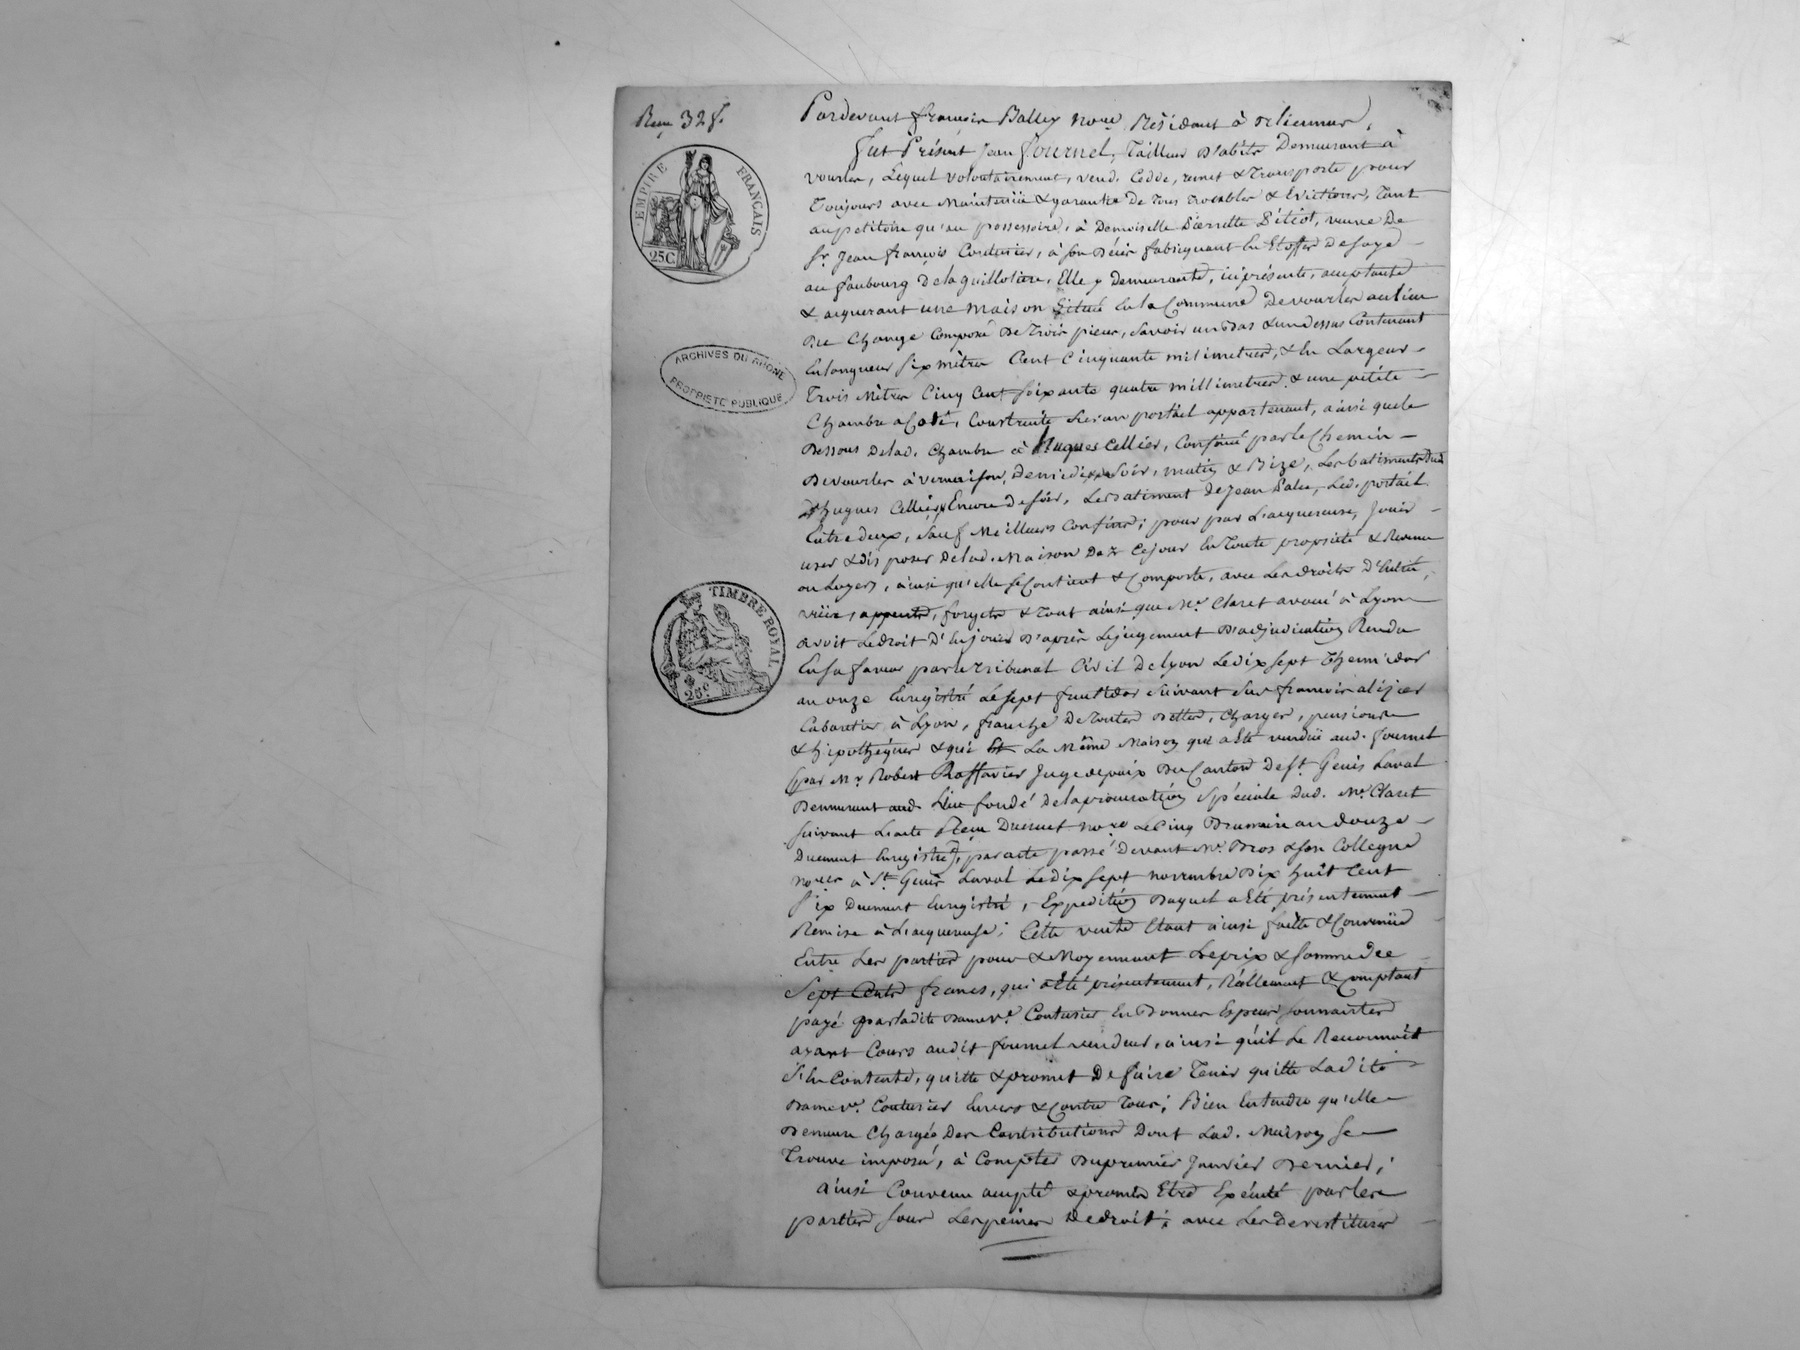 Reçu 32 f.
EMPIRE FRANÇAIS
25C
ARCHIVES DU RHÔNE
PROPRIETE PUBLIQUE
TIMBRE ROYAL
25c
Pardevant françois Balley no.re Résidant à orliennas,
fut Présent Jean fournel, Tailleur D'abits Demeurant à
vourles, Lequel volontairement, vend, Cedde, remet & Transporte pour
Toujours avec Maintenüe & garantie De Tous Troubles & Evictions, Tant
au petitoire qu'au possessoire, à Demoiselle Pierrette Pitiot, veuve De
Sr. Jean françois Couturier, à son Décès fabriquant En Etoffes de soye
au faubourg De la guillotiere, Elle y Demeurante, ici présente, acceptante
& aquerant une maison Située En la Commune De vourles au lieu
Du Change Composée De Trois pieces, savoir un Bas & un dessus Contenant
En longueur six mètres Cent Cinquante milimetres, & En Largeur
Trois Mètres Cinq Cent soixante quatre millimetres, & une petite
Chambre a Coté, Construite sur un portail appartenant, ainsi que le
Dessous De lad. Chambre à Hugues Cellier, Confiné par le Chemin
De vourles à vernaison, De midi & soir, matin & Bize, Les batiments dud
Hugues Cellier Encore De soir, Les batiment de Jean Palec, Led. portail
Entre deux, sauf Meilleurs Confins; pour par L'acquereuse, Jouir
user & disposer De lad. Maison Dez Ce jour En Toute propriété & Revenu
ou Loyers, ainsi qu'elle se Contient & Comporte, avec Les droits D'Entrée,
vüe, appents, forgets & Tout ainsi que Mr. Claret avoué à Lyon
avoit Le droit D'En jouir D'après Le jugement D'adjudication Rendu
En sa faveur par le tribunal Civil De lyon Le dix sept Thermidor
an onze Enregistré Le sept fructidor suivant sur françois alizier
Cabaretier à Lyon, franche De Toutes Dettes, Charges, pensions
& hipothèques & qui Est La Même Maison qui a Eté vendüe aud. fournel
par Mr Robert Raffavier Juge de paix Du Canton De St. Genis Laval
Demeurant aud. Lieu fondé De la procuration Spéciale Dud. Mr. Claret
suivant L'acte Reçu Ducruet no.re Le Cinq Brumaire an douze
Duement Enregistré, par acte passé Devant Mr. Bros & son Collegue
no.res à St. Genis Laval Le dix sept novembre Dix huit Cent
six Duement Enregistré, Expedition Duquel a Eté présentement
Remise à L'acquereuse; Cette vente Etant ainsi faitte & Convenüe
Entre Les parties pour & Moyennant Le prix & somme De
Sept Cents francs, qui a Eté présentement, Réellement & Comptant
payé par ladite Dame ve. Couturier En Bonnes Especes sonnantes
ayant Cours audit fournel vendeur, ainsi qu'il Le Reconnoit
s'En Contente, quitte & promet De faire Tenir quitte Ladite
Dame ve. Couturier Envers & Contre Tous; Bien Entendu qu'elle
Demeure Chargée Des Contributions Dont Lad. Maison se
Trouve imposée, à Compter Du premier Janvier Dernier;
ainsi Convenu accepté & promis Etre Exécuté par les
parties sous Les peines De droit; avec Les Devestitures